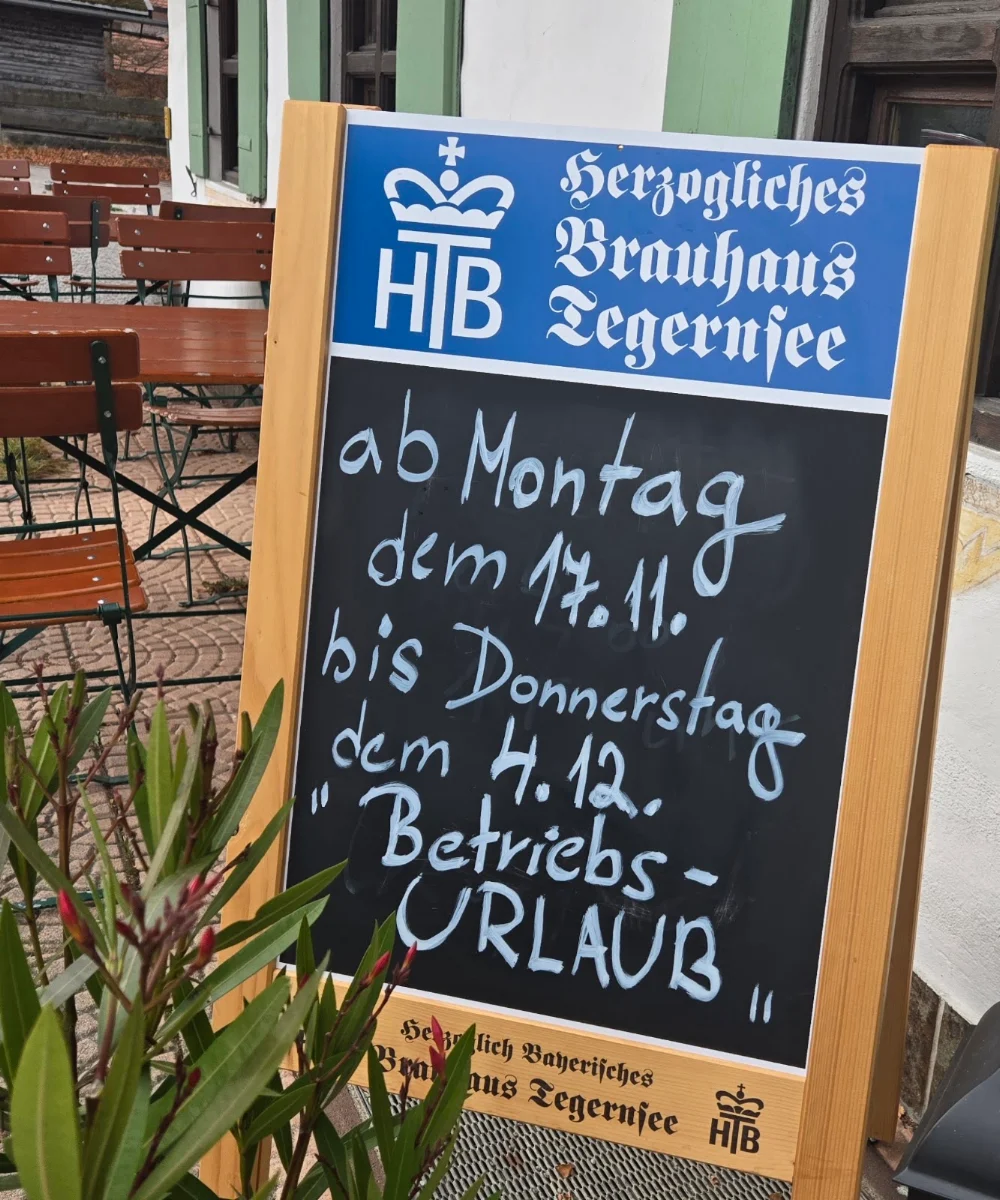 HTB
Herzogliches
Brauhaus
Tegernsee
ab Montag
dem 17.11.
bis Donnerstag
dem 4.12.
" Betriebs-
URLAUB "
Herzoglich Bayerisches
Brauhaus Tegernsee
HTB